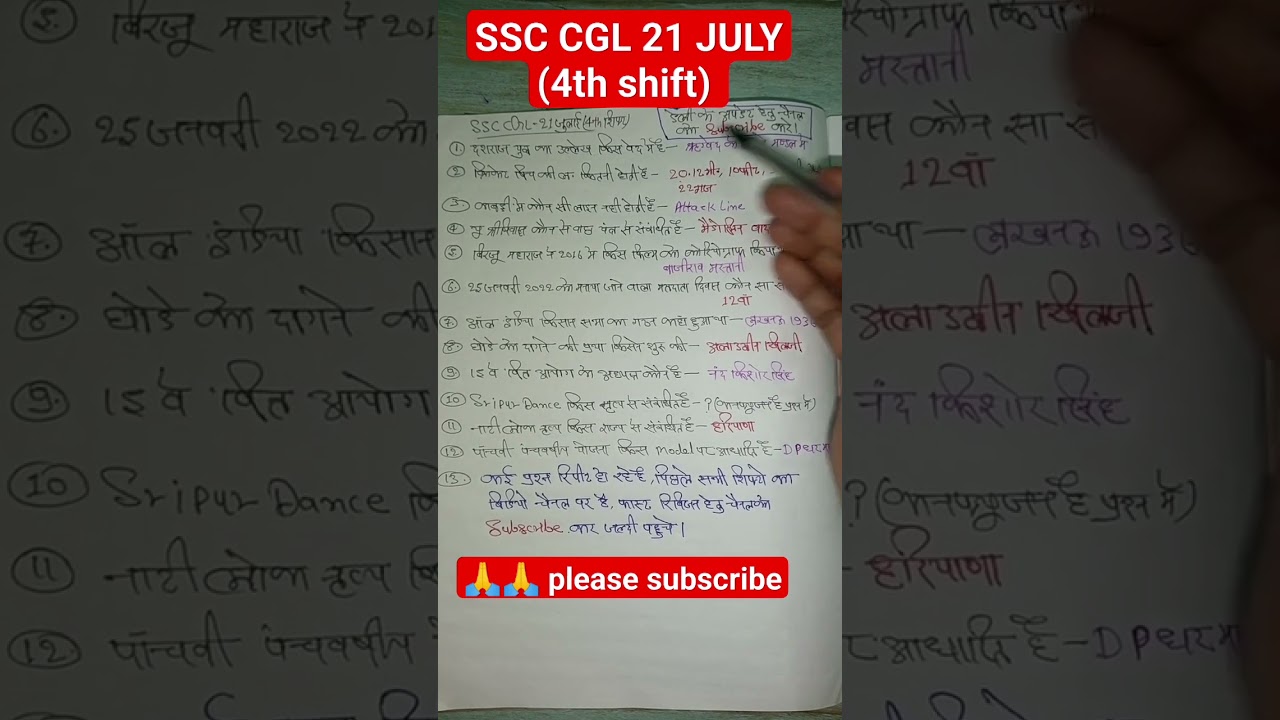 SSC CGL 21 JULY
(4th shift)
SSC CGL-21 जुलाई (4th शिफ्ट)
डेली के अपडेट हेतु चैनल
को Subscribe करें।
① दशराज युद्ध का उल्लेख किस वेद में है- ऋग्वेद के मण्डल में
② क्रिकेट पिच की ल. कितनी होती है- 20.12 मीट, 10 फीट,
22 गज
③ कबड्डी में कौन सी लाइन नहीं होती है- Attack Line
④ यू श्रीनिवास कौन से वाद्य यंत्र से संबंधित है- मैंडोलिन
⑤ बिरजू महाराज ने 2016 में किस फिल्म को कोरियोग्राफ किया
बाजीराव मस्तानी
⑥ 25 जनवरी 2022 को मनाया जाने वाला मतदाता दिवस कौन सा
12वां
⑦ ऑल इंडिया किसान सभा का गठन कहाँ हुआ था- लखनऊ 1936
⑧ घोडे को दागने की प्रथा किसने शुरू की- अलाउद्दीन खिलजी
⑨ 15 वे वित्त आयोग के अध्यक्ष कौन है- नंद किशोर सिंह
⑩ Sripur Dance किस नृत्य से संबंधित है- ? (कनफ्यूजन है प्रश्न में)
⑪ नाटी लोक नृत्य किस राज्य से संबंधित है- हरियाणा
⑫ पाँचवी पंचवर्षीय योजना किस model पर आधारित है- DP धर
13. कई प्रश्न रिपीट हो रहे हैं, पिछले सभी शिफ्टो का
विडियो चैनल पर है, फास्ट रिविजन हेतु चैनल को
Subscribe कर जल्दी पहुचे।
🙏🙏 please subscribe